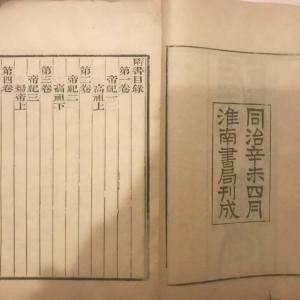 同治辛未四月
淮南書局刊成
隋書目錄
第一卷
帝紀一
高祖上
第二卷
帝紀二
高祖下
第三卷
帝紀三
煬帝上
第四卷